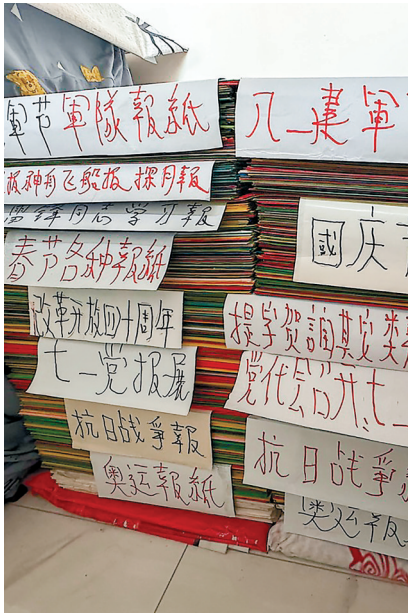 軍节軍隊報紙
报神舟飞船报 探月報
雷鋒同志学习報
春节各种報紙
改革开放四十周年
七一党报展
抗日战爭報
奥运報紙
八一建軍
國庆
提字贺詞其它类
党代会召开.七一
抗日战爭
奥运報